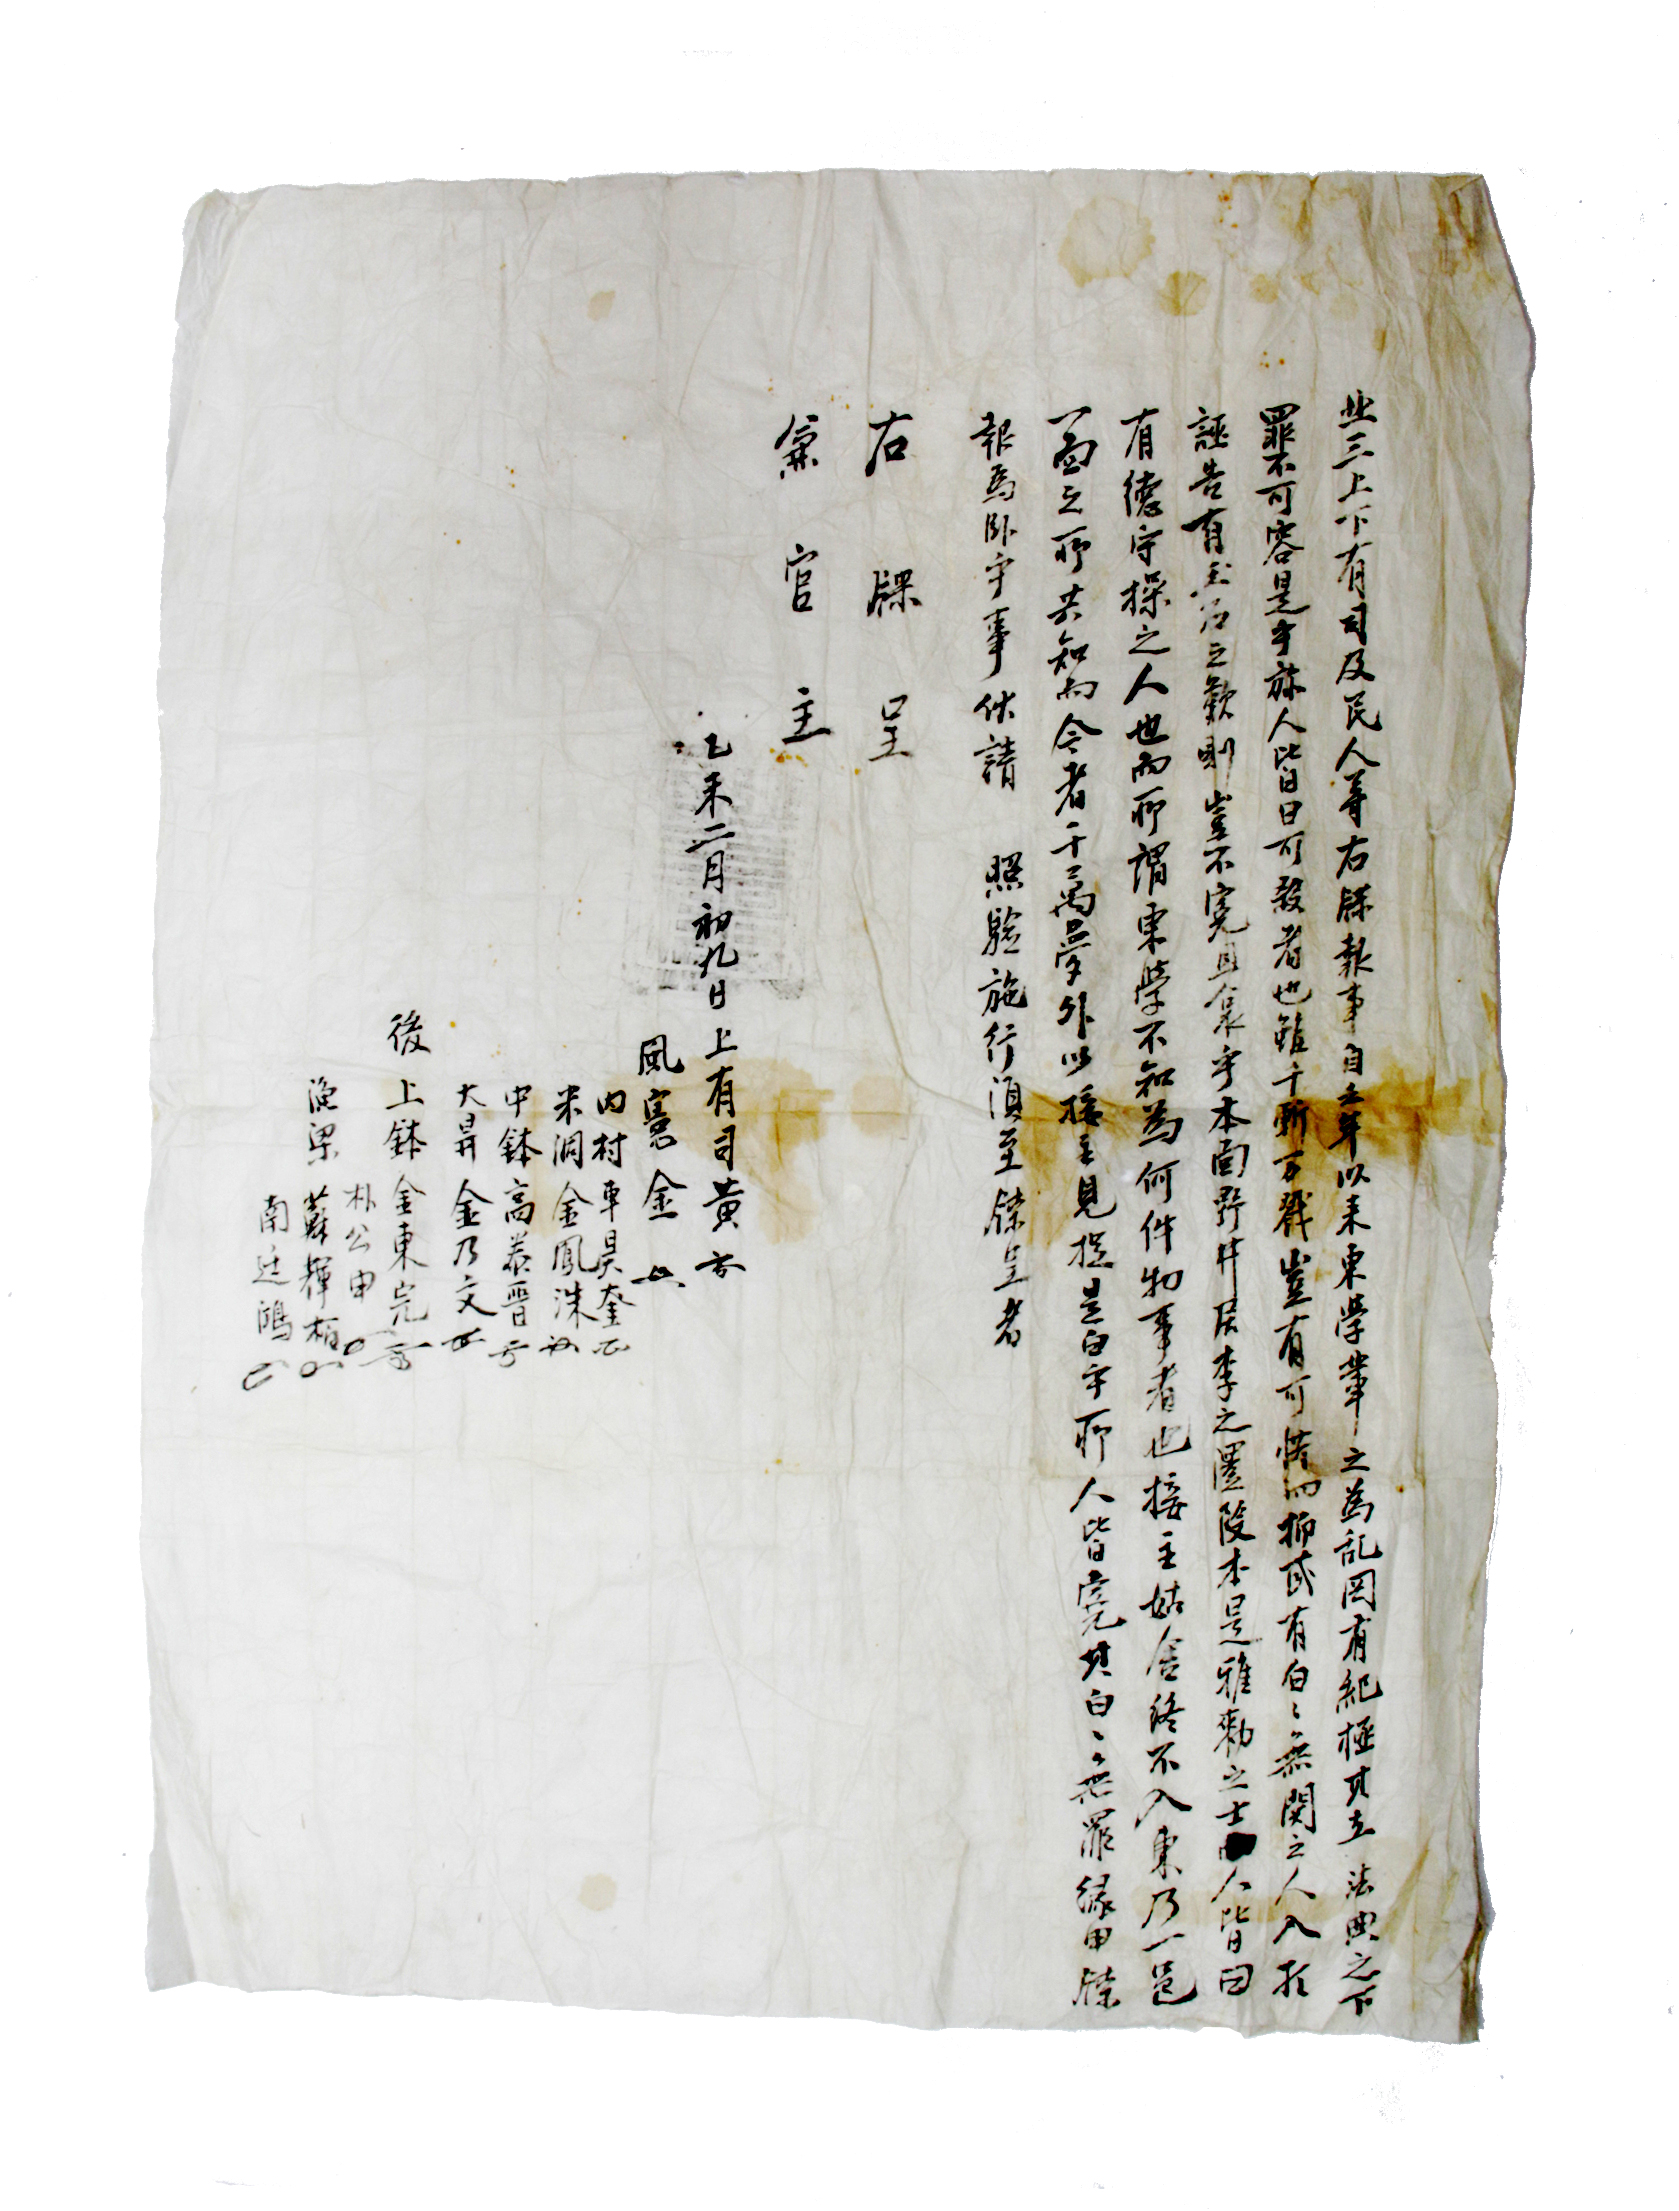 北三上下有司及民人等右牒報事自上年以來東學輩之爲乱罔有紀極其在法典之下
罪不可容是乎旀人皆曰可殺者也雖千斬万戮豈有可惜而抑或有白〻無関之人入於
誣告有玉石之歎則豈不寃且哀乎本面野井居李之墨段本是雅勅之士 人皆曰
有德守操之人也而所謂東學不知為何件物事者也接主姑舍終不入東乃一邑
一面之所共知而今者千萬夢外以接主見捉是白乎所人皆寃其白〻無罪緣由牒
報爲臥乎事伏請 照驗施行須至牒呈者
右牒呈
兼官主
乙未二月初九日上有司黃
風憲金
內村車昊奎
米洞金鳳洙
中鉢高泰晋
大昇金乃文
後上鉢金東完
朴公申
漁梁蘇輝栢
南廷鴻